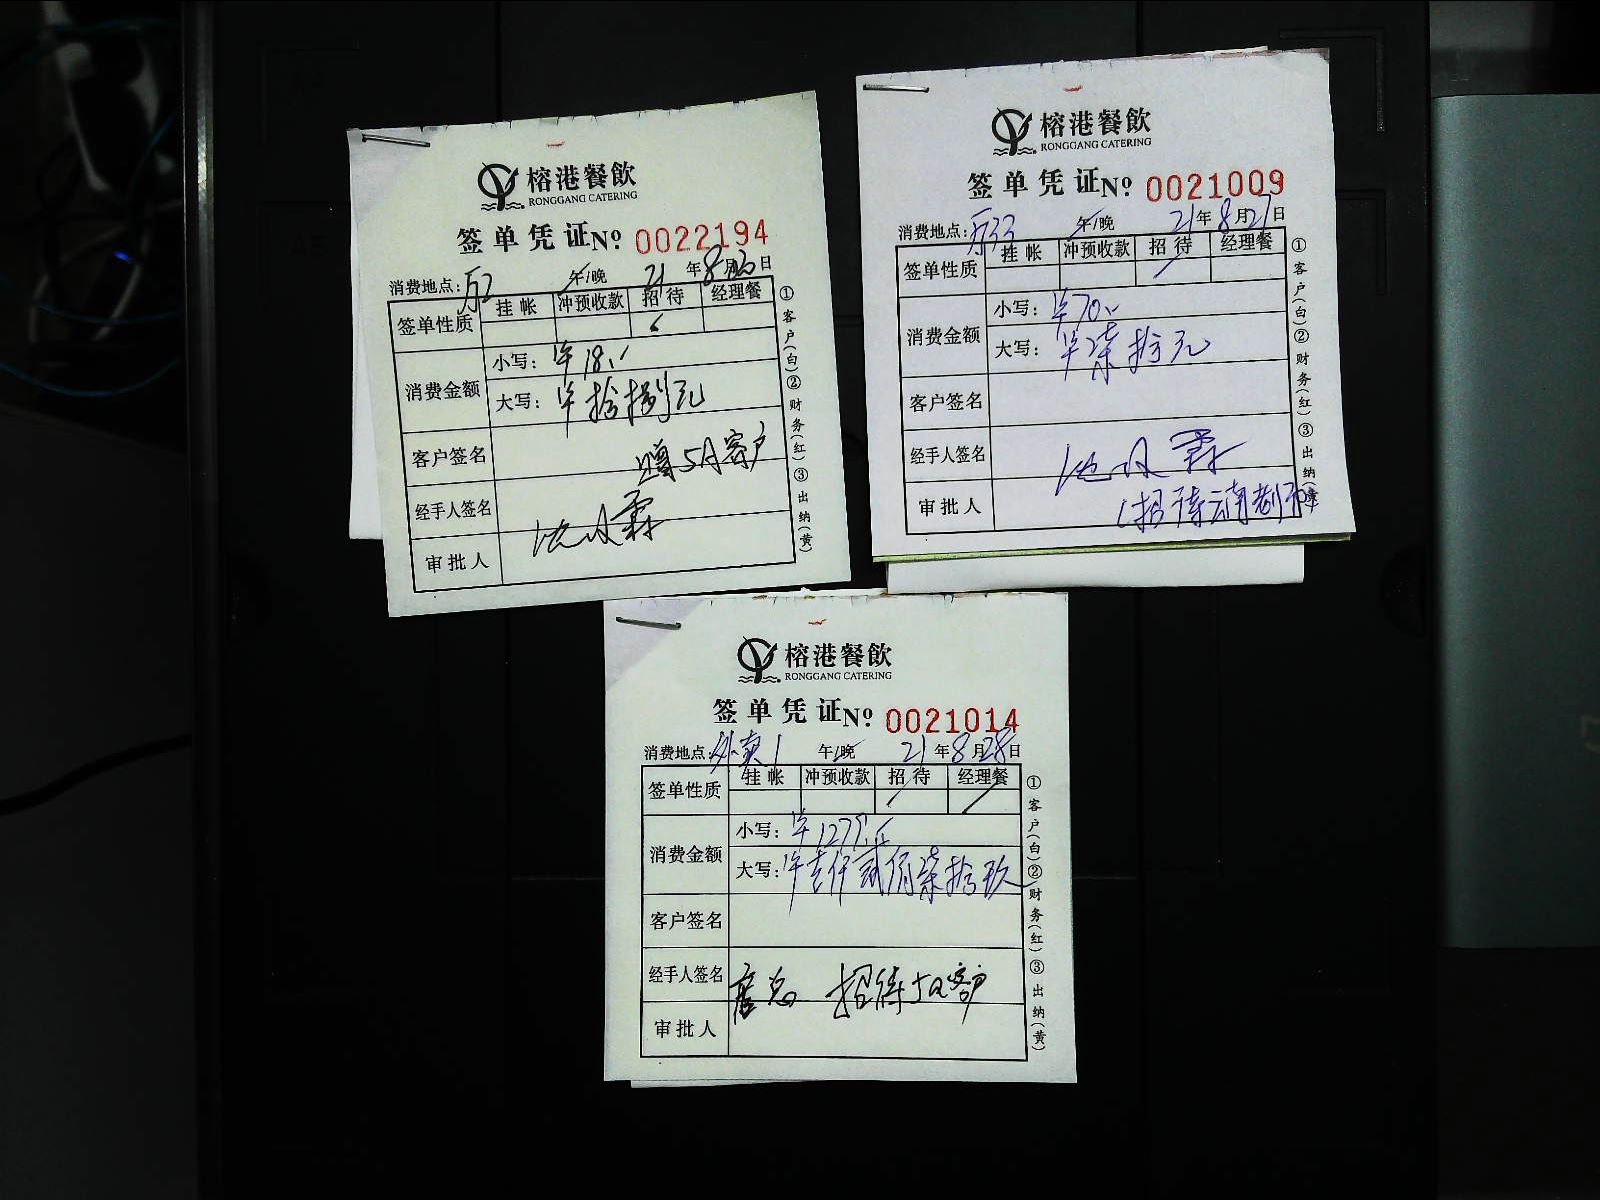 榕港餐飲
RONGGANG CATERING
签单凭证 № 0022194
消费地点: 午/晚 21年8月 日
签单性质 挂帐 冲预收款 招待 经理餐
消费金额 小写: ¥18
大写: ¥拾捌元
客户签名 赠 客户
经手人签名
审批人
①客户(白)②财务(红)③出纳(黄)
榕港餐飲
RONGGANG CATERING
签单凭证 № 0021009
消费地点: 午/晚 21年8月27日
签单性质 挂帐 冲预收款 招待 经理餐
消费金额 小写: ¥70
大写: ¥柒拾元
客户签名
经手人签名 霖
审批人 (招待云南
①客户(白)②财务(红)③出纳(黄)
榕港餐飲
RONGGANG CATERING
签单凭证 № 0021014
消费地点: 外卖1 午/晚 21年8月28日
签单性质 挂帐 冲预收款 招待 经理餐
消费金额 小写: ¥1279
大写: ¥壹仟贰佰柒拾玖
客户签名
经手人签名 唐总 招待 客户
审批人
①客户(白)②财务(红)③出纳(黄)